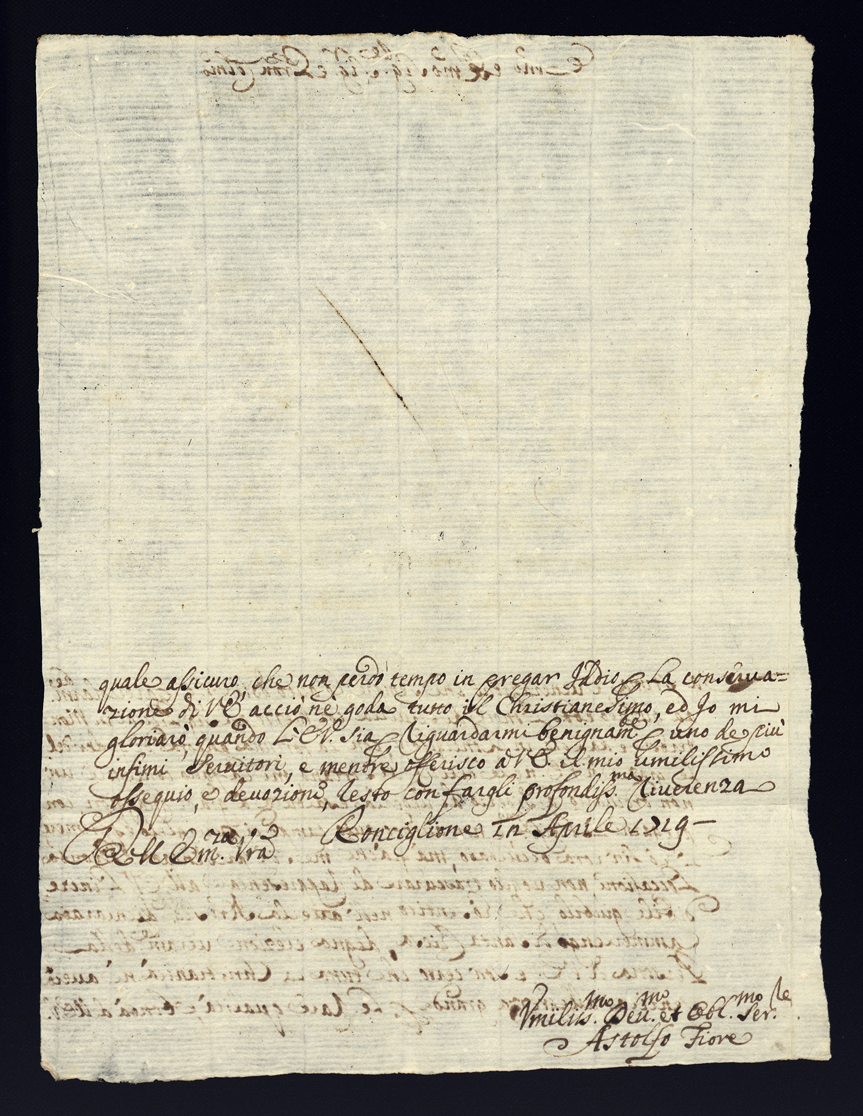 quale assicuro, che non perdo tempo in pregar Iddio per La conserva=
zione di VE acciò ne goda tutto il Christianesimo, ed Io mi
gloriarò quando L'E.V. sia per riguardarmi benignam.e per uno de più
infimi Servitori, e mentre offerisco a VE il mio umilissimo
ossequio, e devozione, resto con fargli profondiss.ma riverenza
Dell Em.za Vra Ronciglione in Aprile 1719
Umiliss.mo Dev.mo et Obl.mo Ser.le
Astolfo Fiore